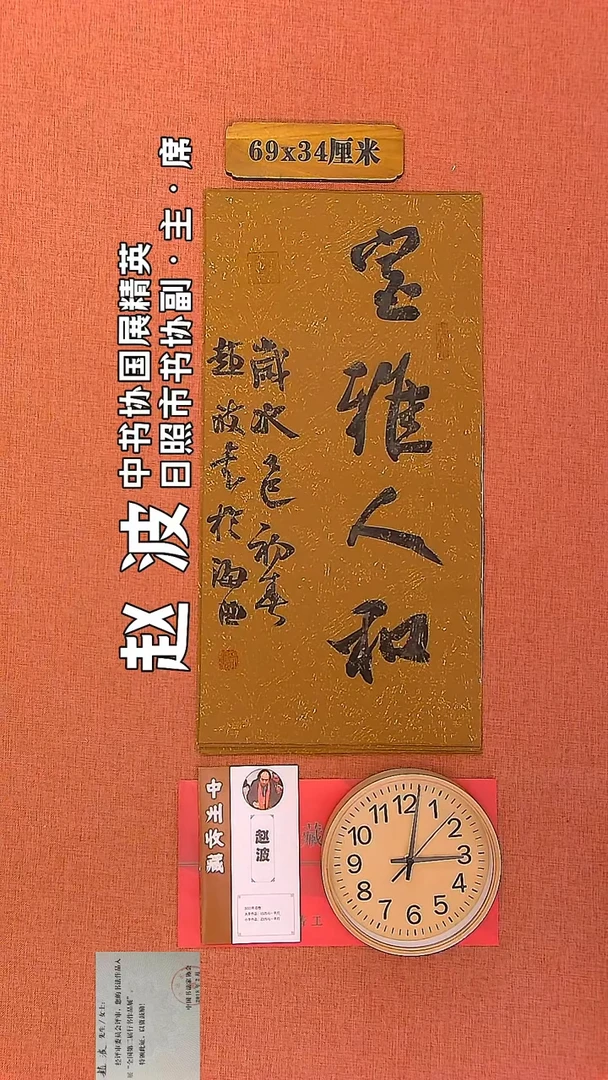 69x34厘米
室雅人和
岁水邑初春
赵波书于海西
中书协国展精英
日照市书协副·主·席
赵波
中
藏
赵
波
藏
12
1
2
3
4
5
6
7
8
9
10
11
赵波 先生/女士：
经评审委员会评审，您的书法作品入
展“全国第二届行书作品展”，
特颁此证，以资鼓励！
中国书法家协会